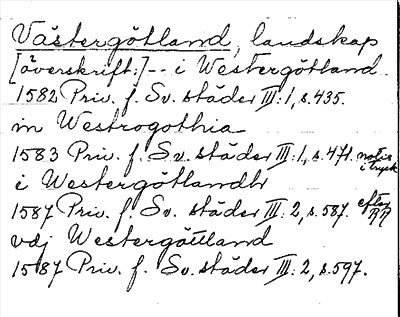 Västergötland, landskap
[överskrift:] -- i Westergötland.
1582 Priv. f. Sv. städer III: 1, s. 435.
in Westrogothia
1583 Priv. f. Sv. städer III: 1, s. 471. notis i tryck
i Westergötlandh
1587 Priv. f. Sv. städer III: 2, s. 587. efter RR
vdj Westergöttland
1587 Priv. f. Sv. städer III: 2, s. 597.